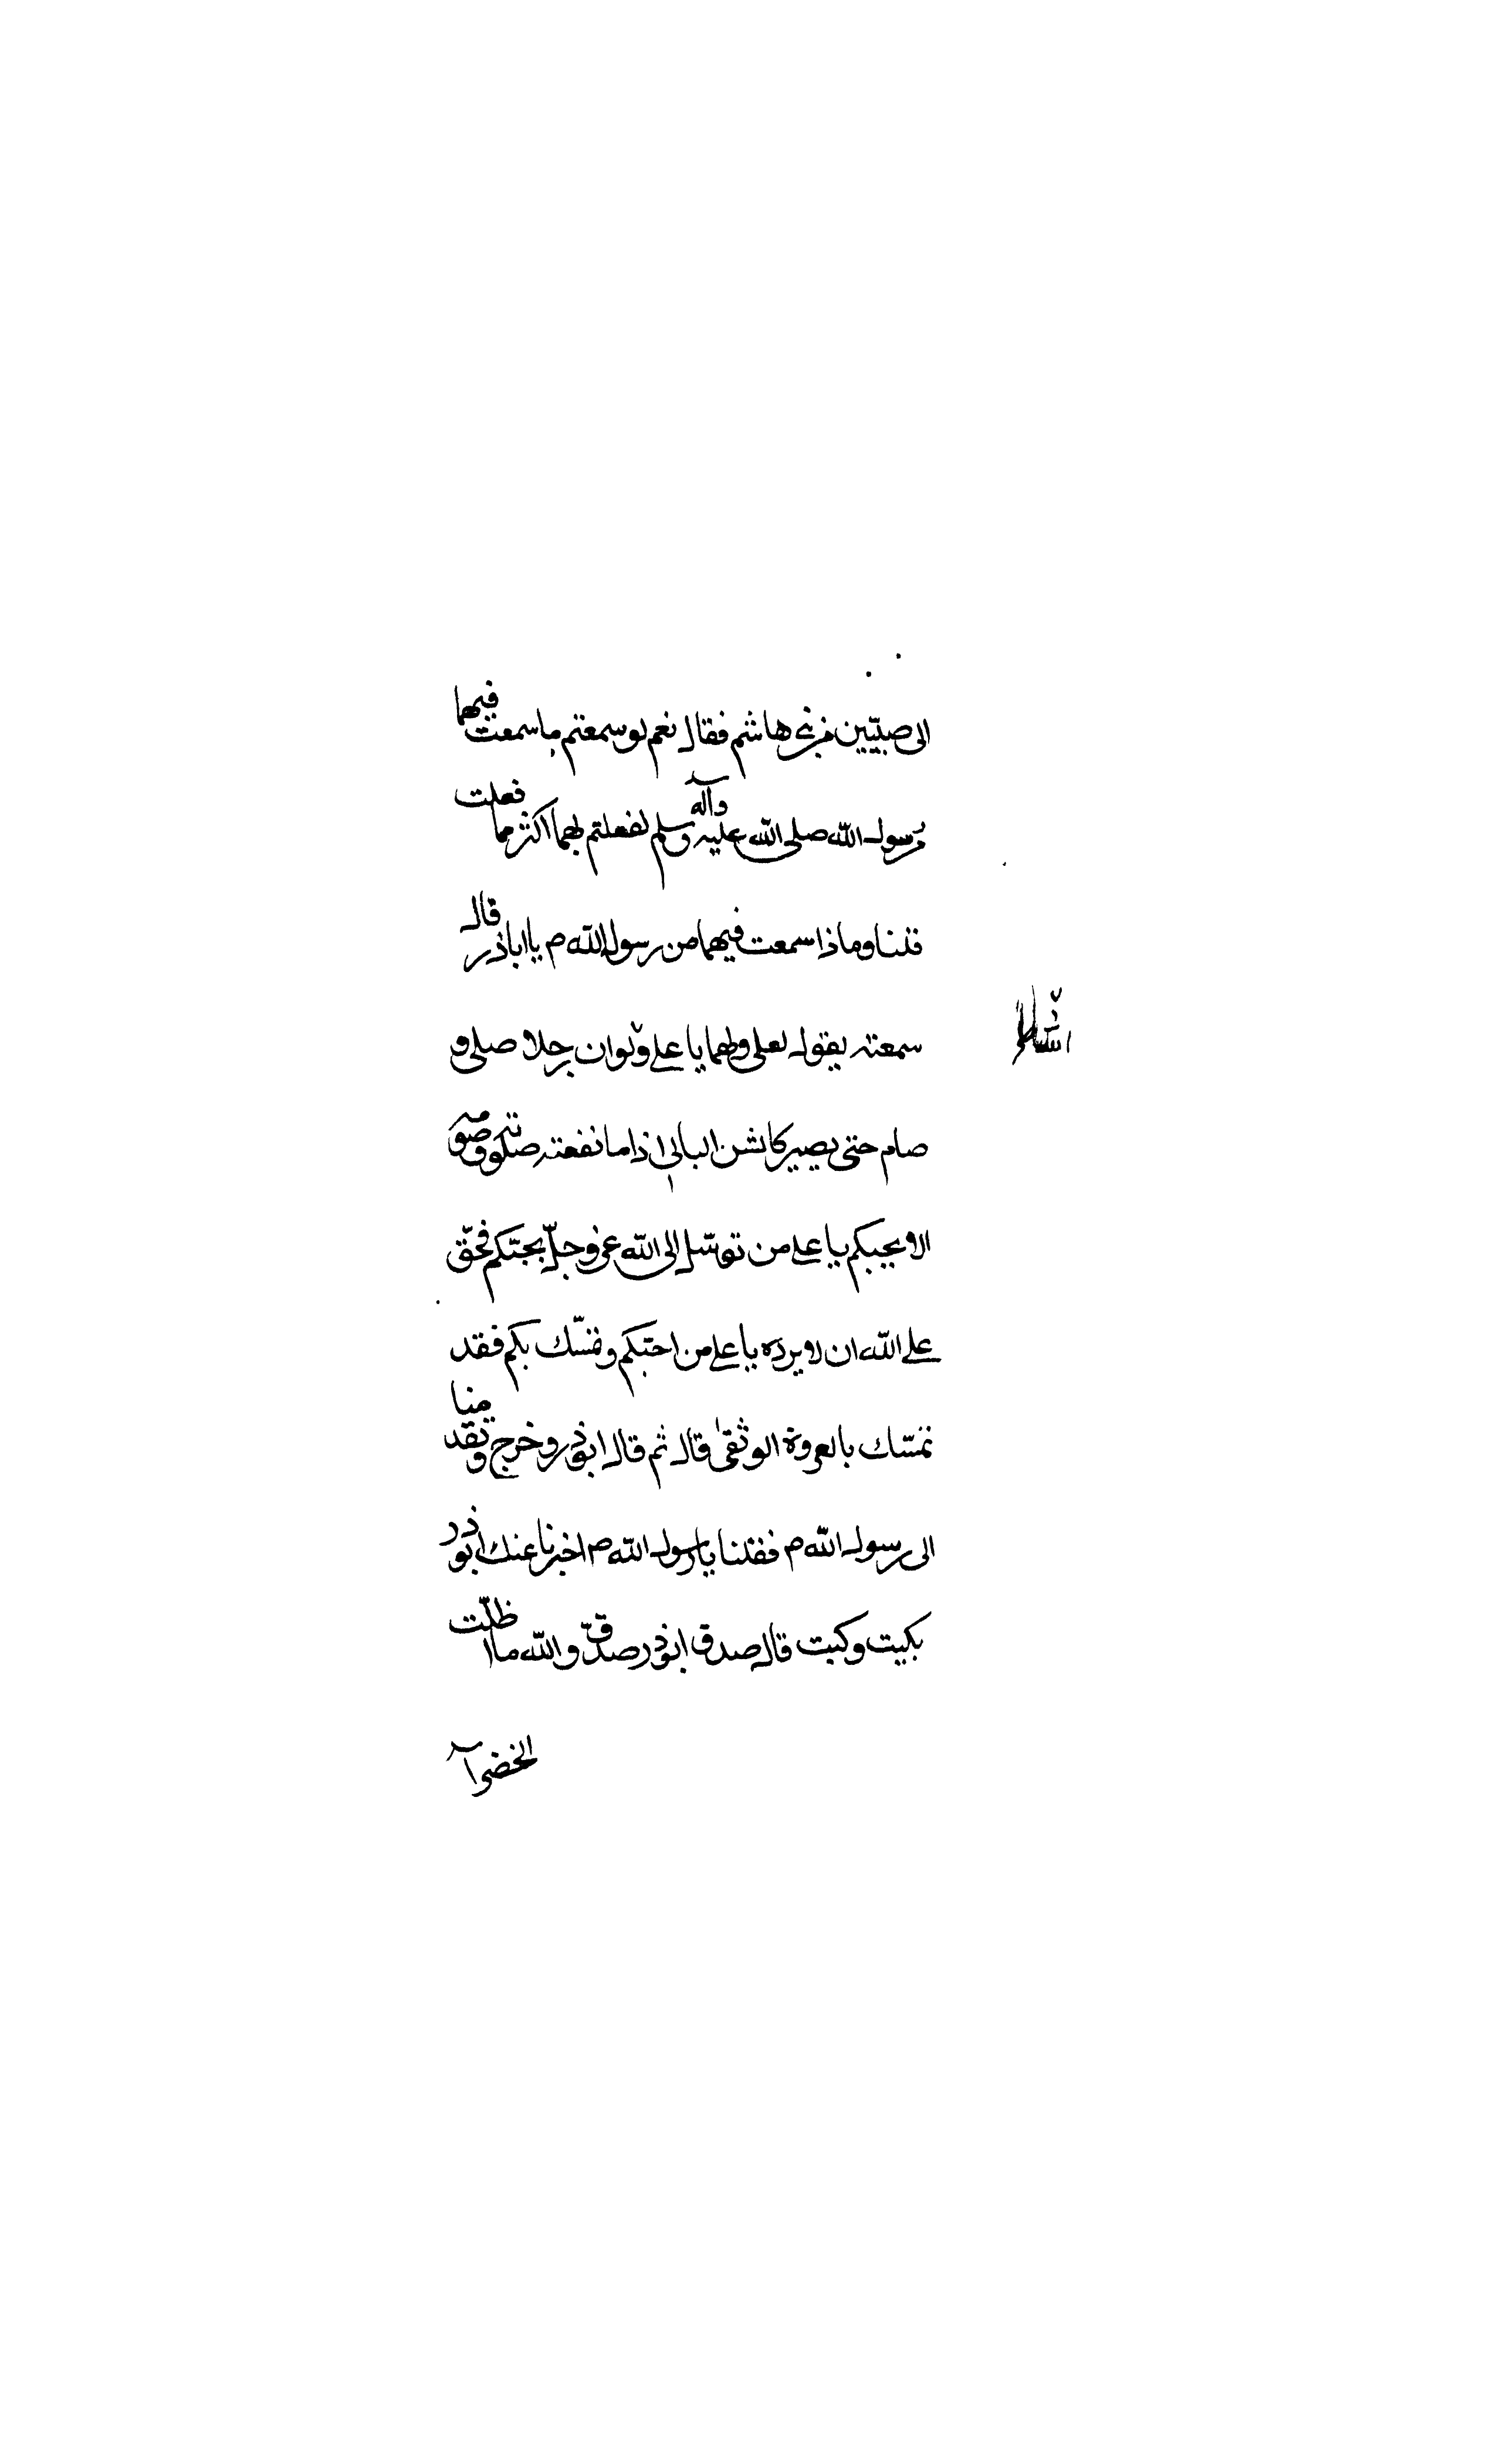 الى صبيّين من بني هاشم فقال نعم لو سمعتم ما سمعت فيهما
رسول الله صلى الله عليه وآله وسلم لفعلتم بهما اكثر مما فعلت
قلنا وماذا سمعت فيهما من رسول الله ص يا اباذر قال
سمعته يقول لعلي ولهما يا علي ولو ان رجلا صلى و
صام حتى يصير كالشن البالي اذا ما نفعته صلوته وصومه
الا بحبكم يا علي من توسّل الى الله عز وجلّ بحبّكم فحقّ
على الله ان لا يرده يا علي من احبّكم وتمسّك بكم فقد
تمسّك بالعروة الوثقى قال ثم قال ابوذر وخرج وتقدمنا
الى رسول الله ص فقلنا يا رسول الله ص اخبرنا عنك ابوذر
بكيت وكيت قال صدق ابوذر صدق والله ما اظلّت
الخضرآء